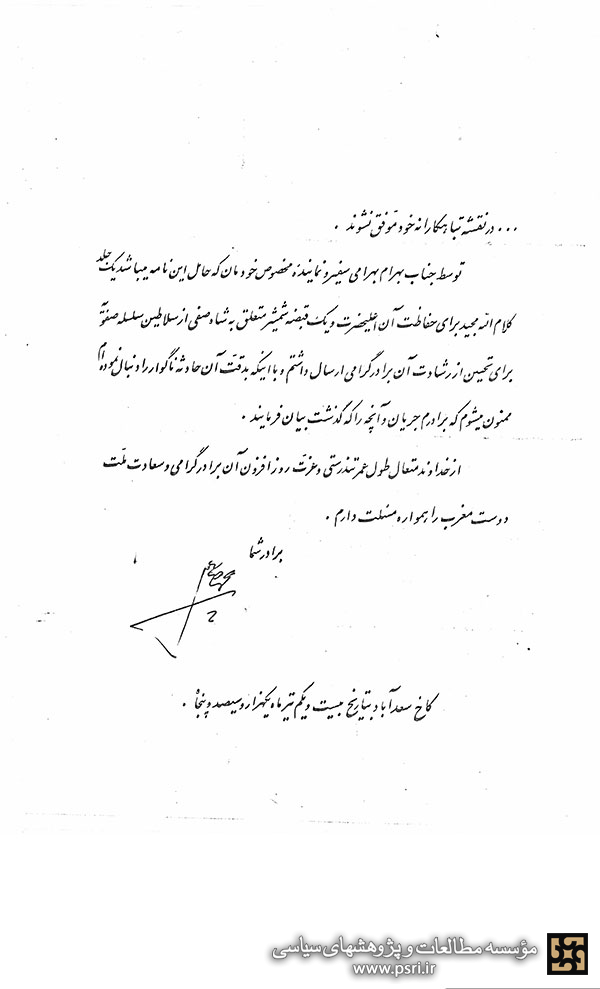 ... در نقشه تباهکارانه خود موفق نشوند .
توسط جناب بهرام بهرامی سفیر و نماینده مخصوص خودمان که حامل این نامه میباشد یک جلد
کلام اله مجید برای حفاظت آن اعلیحضرت و یک قبضه شمشیر متعلق به شاه صفی از سلاطین سلسله صفویه
برای تحسین از رشادت آن برادر گرامی ارسال داشتم و با اینکه بدقت آن حادثه ناگوار را دنبال نموده‌ام
ممنون میشوم که برادرم جریان و آنچه را که گذشت بیان فرمایند .
از خداوند متعال طول عمر تندرستی و عزت روزافزون آن برادر گرامی و سعادت ملت
دوست مغرب را همواره مسئلت دارم .
برادر شما
کاخ سعدآباد بتاریخ بیست و یکم تیر ماه یکهزار و سیصد و پنجاه .
مؤسسه مطالعات و پژوهشهای سیاسی
www.psri.ir